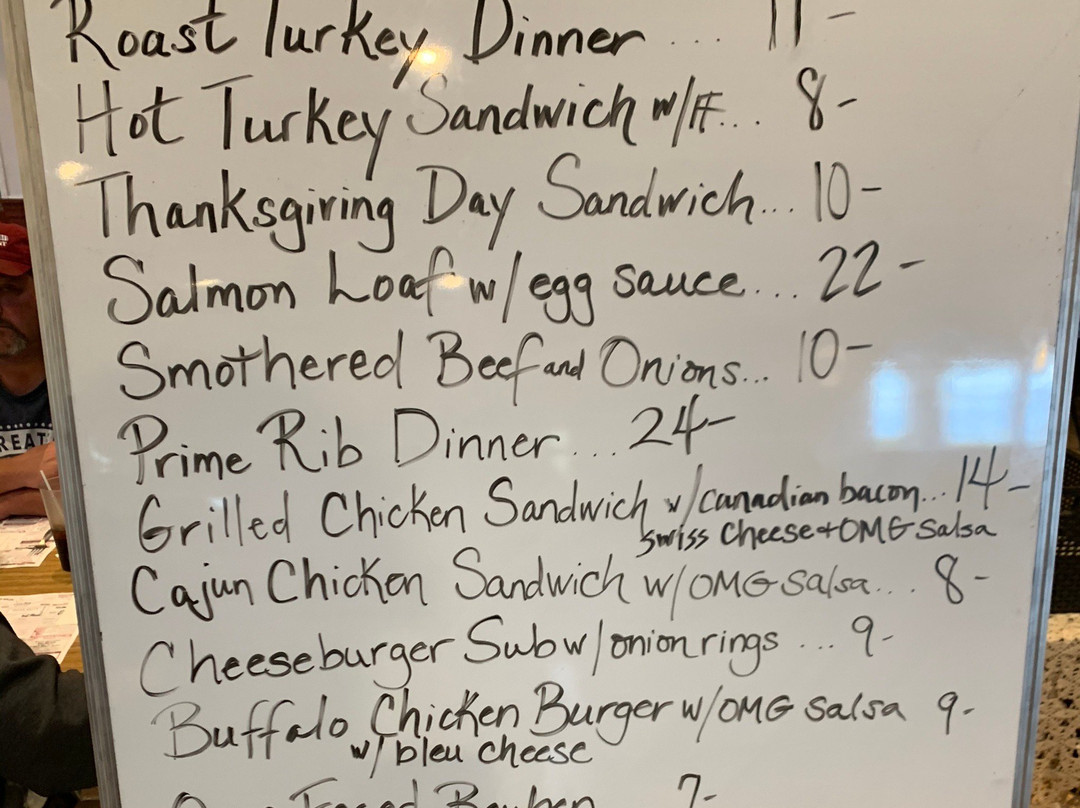 Roast Turkey Dinner ... 11-
Hot Turkey Sandwich w/FF... 8-
Thanksgiving Day Sandwich... 10-
Salmon Loaf w/egg sauce... 22-
Smothered Beef and Onions... 10-
Prime Rib Dinner ... 24-
Grilled Chicken Sandwich w/canadian bacon... 14-
swiss cheese+OMG salsa
Cajun Chicken Sandwich w/OMG salsa... 8-
Cheeseburger Sub w/onion rings ... 9-
Buffalo Chicken Burger w/OMG salsa 9-
w/ bleu cheese
Open Faced Reuben 7-
REAT